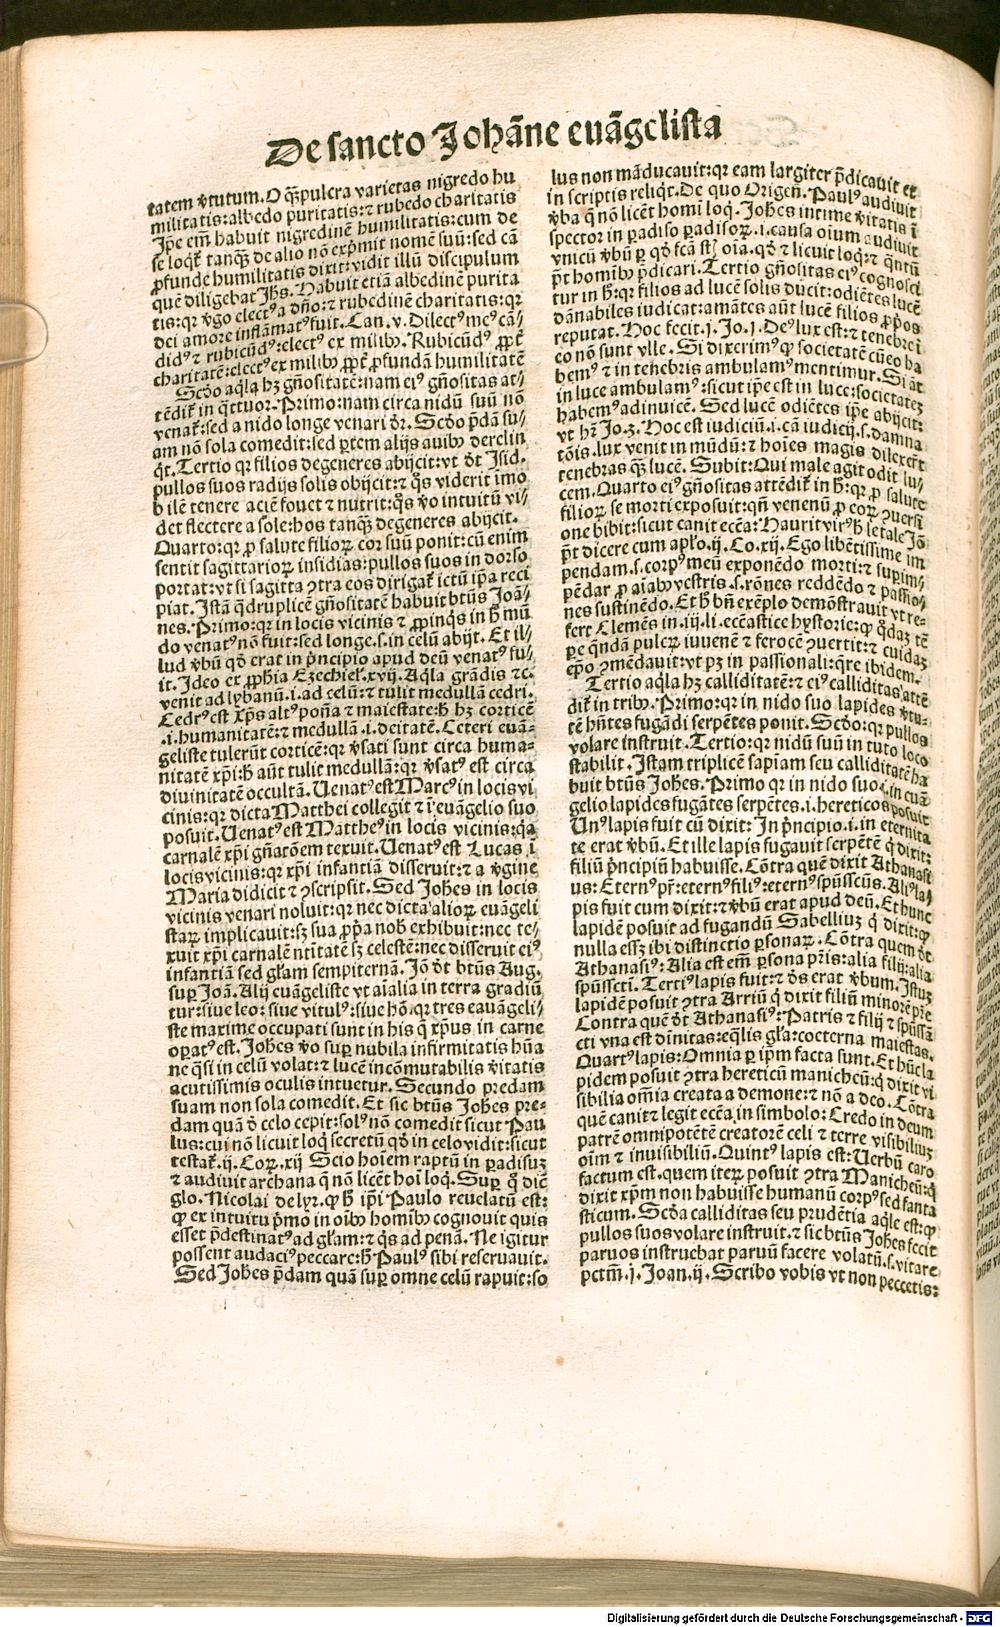 De sancto Johāne euāgelista
tatem v̄tutum. O q̄ȝpulcra varietas nigredo hu
militatis: albedo puritatis: ⁊ rubedo charitatis
Ip̄e em̄ habuit nigredinē humilitatis: cum de
se loqᷣ tanqȝ de alio nō exp̄mit nomē suū: sed cā
ꝓfunde humilitatis dixit: vidit illū discipulum
quē diligebat Jh̄s. Habuit etiā albedinē purita
tis: qꝛ v̄go electꝰ a dn̄o: ⁊ rubedinē charitatis: qꝛ
dei amore inflāmatꝰ fuit. Can. v. Dilectꝰ meꝰ cā/
didꝰ ⁊ rubicūdꝰ: electꝰ ex milibꝫ. Rubicūdꝰ ꝓpt̄
charitatē: electꝰ ex milibꝫ ꝓpt̄ ꝓfundā humilitatē
Scd̄o aq̄la hꝫ gn̄ositatē: nam eiꝰ gn̄ositas at/
tēdiᷣ in q̄ttuor. Primo: nam circa nidū suū nō
venaᷣ: sed a nido longe venari d̄r. Scd̄o p̄dā su/
am nō sola comedit: sed ꝑtem alijs auibꝫ derelin
q̄t. Tertio qꝛ filios degeneres abijcit: vt d̄t Isid.
pullos suos radijs solis obijcit: ⁊ q̄s viderit īmo
bilē tenere aciē fouet ⁊ nutrit: q̄s v̄o intuitū vi/
det flectere a sole: hos tanqȝ degeneres abijcit.
Quarto: qꝛ ꝓ salute filioꝝ cor suū ponit: cū enim
sentit sagittarioꝝ insidias: pullos suos in dorso
portat: vt si sagitta ꝯtra eos dirigaᷣ ictū ip̄a reci
piat. Istā q̄druplicē gn̄ositatē habuit btūs Joā/
nes. Primo: qꝛ in locis vicinis ⁊ ꝓpinq̄s in h̄ mū
do venatꝰ nō fuit: sed longe .s. in celū abijt. Et il/
lud v̄bū qd̄ erat in p̄ncipio apud deū venatꝰ fu/
it. Ideo ex ꝓphīa Ezechiel̓. xvij. Aq̄la grādis ⁊c.
venit ad lybanū .i. ad celū: ⁊ tulit medullā cedri.
Cedrꝰ est xp̄s altꝰ poñā ⁊ maiestate: h̄ hꝫ corticē
.i. humanitatē: ⁊ medullā .i. deitatē. Ceteri euā-
geliste tulerūt corticē: qꝛ v̄sati sunt circa huma-
nitatē xp̄i: h̄ aūt tulit medullā: qꝛ v̄satꝰ est circa
diuinitatē occultā. Uenatꝰ est Marcꝰ in locis vi
cinis: qꝛ dicta Matthei collegit ⁊ ī euāgelio suo
posuit. Uenatꝰ est Mattheꝰ in locis vicinis: q̄a
carnalē xp̄i gn̄atōem texuit. Uenatꝰ est Lucas ī
locis vicinis: qꝛ xp̄i infantiā disseruit: ⁊ a v̄gine
Maria didicit ⁊ ꝯscripsit. Sed Joh̄es in locis
vicinis venari noluit: qꝛ nec dicta alioꝝ euāgeli
staꝝ implicauit: sꝫ sua ꝓpꝛa nob̄ exhibuit: nec te/
xuit xp̄i carnalē ntitatē sꝫ celestē: nec disseruit eiꝰ
infantiā sed gl̄am sempiternā. Jō d̄t btūs Aug.
suꝑ Joā. Alij euāgeliste vt aīalia in terra gradiū
tur: siue leo: siue vitulꝰ: siue hō. qꝛ tres eauāgeli/
ste maxime occupati sunt in his q̄ xp̄us in carne
oꝑatꝰ est. Joh̄es v̄o suꝑ nubila infirmitatis hūa
ne q̄si in celū volat: ⁊ lucē incōmutabilis v̄itatis
acutissimis oculis intuetur. Secundo predam
suam non sola comedit. Et sic btūs Joh̄es pre-
dam quā d̄ celo cepit: solꝰ nō comedit sicut Pau
lus: cui nō licuit loq̄ secretū qd̄ in celo vidit: sicut
testaᷣ .ij. Coꝝ. xij Scio hoīem raptū in ꝑadisuꝫ
⁊ audiuit archana q̄ nō licēt hoī loq̄. Suꝑ q̄ diē
glo. Nicolai de lyr. ꝙ h̄ ip̄i Paulo reuelatū est:
ꝙ ex intuitu p̄mo in oībꝫ homībꝫ cognouit quis
esset p̄destinatꝰ ad gl̄am: ⁊ q̄s ad penā. Ne igitur
possent audaciꝰ peccare: h̄ Paulꝰ sibi reseruauit.
Sed Joh̄es p̄dam quā suꝑ omne celū rapuit: so
lus non māducauit: qꝛ eam largiter p̄dicauit et
in scriptis reliq̄t. De quo Origeñ. Paulꝰ audiuit
v̄ba q̄ nō licēt homī loq̄. Joh̄es intime v̄itatis ī
spector in ꝑadiso ꝑadisoꝝ .i. causa oīum audiuit
vnicū v̄bū ꝑ qd̄ fc̄a st̄ oīa. qd̄ ⁊ licuit loq̄: ⁊ q̄ntū
p̄t homībꝫ p̄dicari. Tertio gn̄ositas eiꝰ cognosci
tur in h̄: qꝛ filios ad lucē solis ducit: odiētes lucē
dānabiles iudicat: amātes aūt lucē filios ꝓp̄os
reputat. Hoc fecit .j. Jo. j. Deꝰ lux est: ⁊ tenebre ī
eo nō sunt vlle. Si dixerimꝰ ꝙ societatē cū eo ha
bemꝰ ⁊ in tenebris ambulamꝰ mentimur. Si aūt
in luce ambulamꝰ: sicut ip̄e est in luce: societateꝫ
habemꝰ adinuicē. Sed lucē odiētes ip̄e abijcit:
vt h̄r Jo. 3. Hoc est iudiciū .i. cā iudicij .s. damna
tōis. lux venit in mūdū: ⁊ hoīes magis dilexerūt
tenebras qȝ lucē. Subit: Qui male agit odit lu/
cem. Quarto eiꝰ gn̄ositas attēdiᷣ in h̄: qꝛ ꝓ salute
filioꝝ se morti exposuit: qn̄ venenū ꝓ coꝝ ꝯuersi
one bibit: sicut canit ecc̄a: Haurit vir h̄ letale Jō
p̄t dicere cum aplō. ij. Co. xij. Ego libētissime im
pendam .s. corpꝰ meū exponēdo morti: ⁊ suꝑim/
pēdar ꝓ aīabꝫ vestris .s. rōnes reddēdo ⁊ passio/
nes sustinēdo. Et h̄ bn̄ exēplo demōstrauit vt re-
fert Clemēs in .iij. li. ecc̄astice hystorie: ꝙ q̄daꝫ tē
pe q̄ndā pulcꝝ iuuenē ⁊ ferocē ꝯuertit: ⁊ cuidaꝫ
ep̄o ꝯmēdauit: vt pꝫ in passionali: q̄re ibidem.
Tertio aq̄la hꝫ calliditatē: ⁊ eiꝰ calliditas attē
diᷣ in tribꝫ. Primo: qꝛ in nido suo lapides v̄tu-
tē hn̄tes fugādi serpētes ponit. Scd̄o: qꝛ pullos
volare instruit. Tertio: qꝛ nidū suū in tuto loco
stabilit. Istam triplicē sapīam seu calliditatē ha
buit btūs Joh̄es. Primo qꝛ in nido suo .i. in euā
gelio lapides fugātes serpētes .i. hereticos posuit
Unꝰ lapis fuit cū dixit: In p̄ncipio .i. in eternita
te erat v̄bū. Et ille lapis fugauit serpētē q̄ dixit:
filiū p̄ncipiū habuisse. Cōtra quē dixit Athanasi
us: Eternꝰ pr̄: eternꝰ filiꝰ: eternꝰ spūsscūs. Aliꝰ la/
pis fuit cum dixit: ⁊ v̄bū erat apud deū. Et hunc
lapidē posuit ad fugandū Sabelliuꝫ q̄ dixit: ꝙ
nulla esseꝫ ibi distinctio ꝑsonaꝝ. Cōtra quem d̄t
Athanasiꝰ: Alia est em̄ ꝑsona pr̄is: alia filij: alia
spūsscti. Tertiꝰ lapis fuit: ⁊ ds̄ erat v̄bum. Istuꝫ
lapidē posuit ꝯtra Arriū q̄ dixit filiū minorē pr̄e
Contra quē d̄t Athanasiꝰ: Patris ⁊ filij ⁊ spūssā
cti vna est diuinitas: eq̄lis gl̄a: coeterna maiestas.
Quartꝰ lapis: Omnia ꝑ ip̄m facta sunt. Et hūc la
pidem posuit ꝯtra hereticū manicheū: q̄ dixit vi
sibilia om̄ia creata a demone: ⁊ nō a deo. Cōtra
quē canit ⁊ legit ecc̄a in simbolo: Credo in deum
patrē omnipotētē creatorē celi ⁊ terre visibiliuꝫ
oīm ⁊ inuisibiliū. Quintꝰ lapis est: Uerbū caro
factum est. quem iteꝝ posuit ꝯtra Manicheū: q̄
dixit xp̄m non habuisse humanū corpꝰ sed fanta
sticum. Scd̄a calliditas seu prudētia aq̄le est: ꝙ
pullos suos volare instruit. ⁊ sic btūs Joh̄es fecit
paruos instruebat paruū facere volatū .s. vitare
pctm̄. j. Joan. ij. Scribo vobis vt non peccetis:
Digitalisierung gefördert durch die Deutsche Forschungsgemeinschaft - DFG